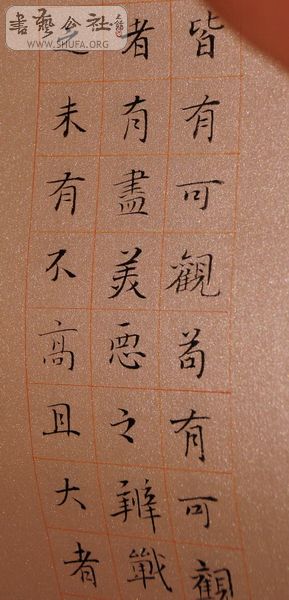 皆有可觀苟有可觀
者有盡美惡之辨戰
未有不高且大者
書藝公社
WWW.SHUFA.ORG